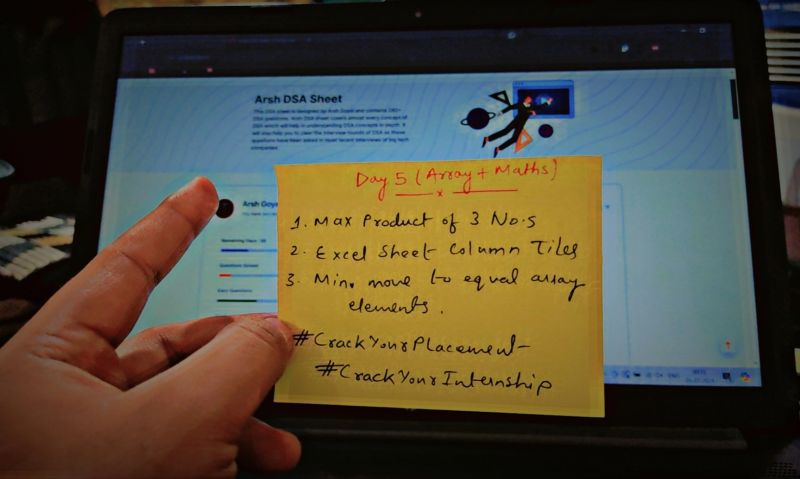 Arsh DSA Sheet
This DSA sheet is designed by Arsh Goyal and contains 280+
DSA questions. Arsh DSA sheet covers almost every concept of
DSA which will help in understanding DSA concepts in depth. It
will also help you to clear the interview rounds of DSA as these
questions have been asked in most recent interviews of big tech
companies
Arsh Goya
Remaining Days
Questions Solved
Easy Questions
Day 5 (Array + Maths)
x
1. Max Product of 3 No.s
2. Excel Sheet Column Tiles
3. Min. move to equal array
elements.
#CrackYourPlacement
#CrackYourInternship
ENG